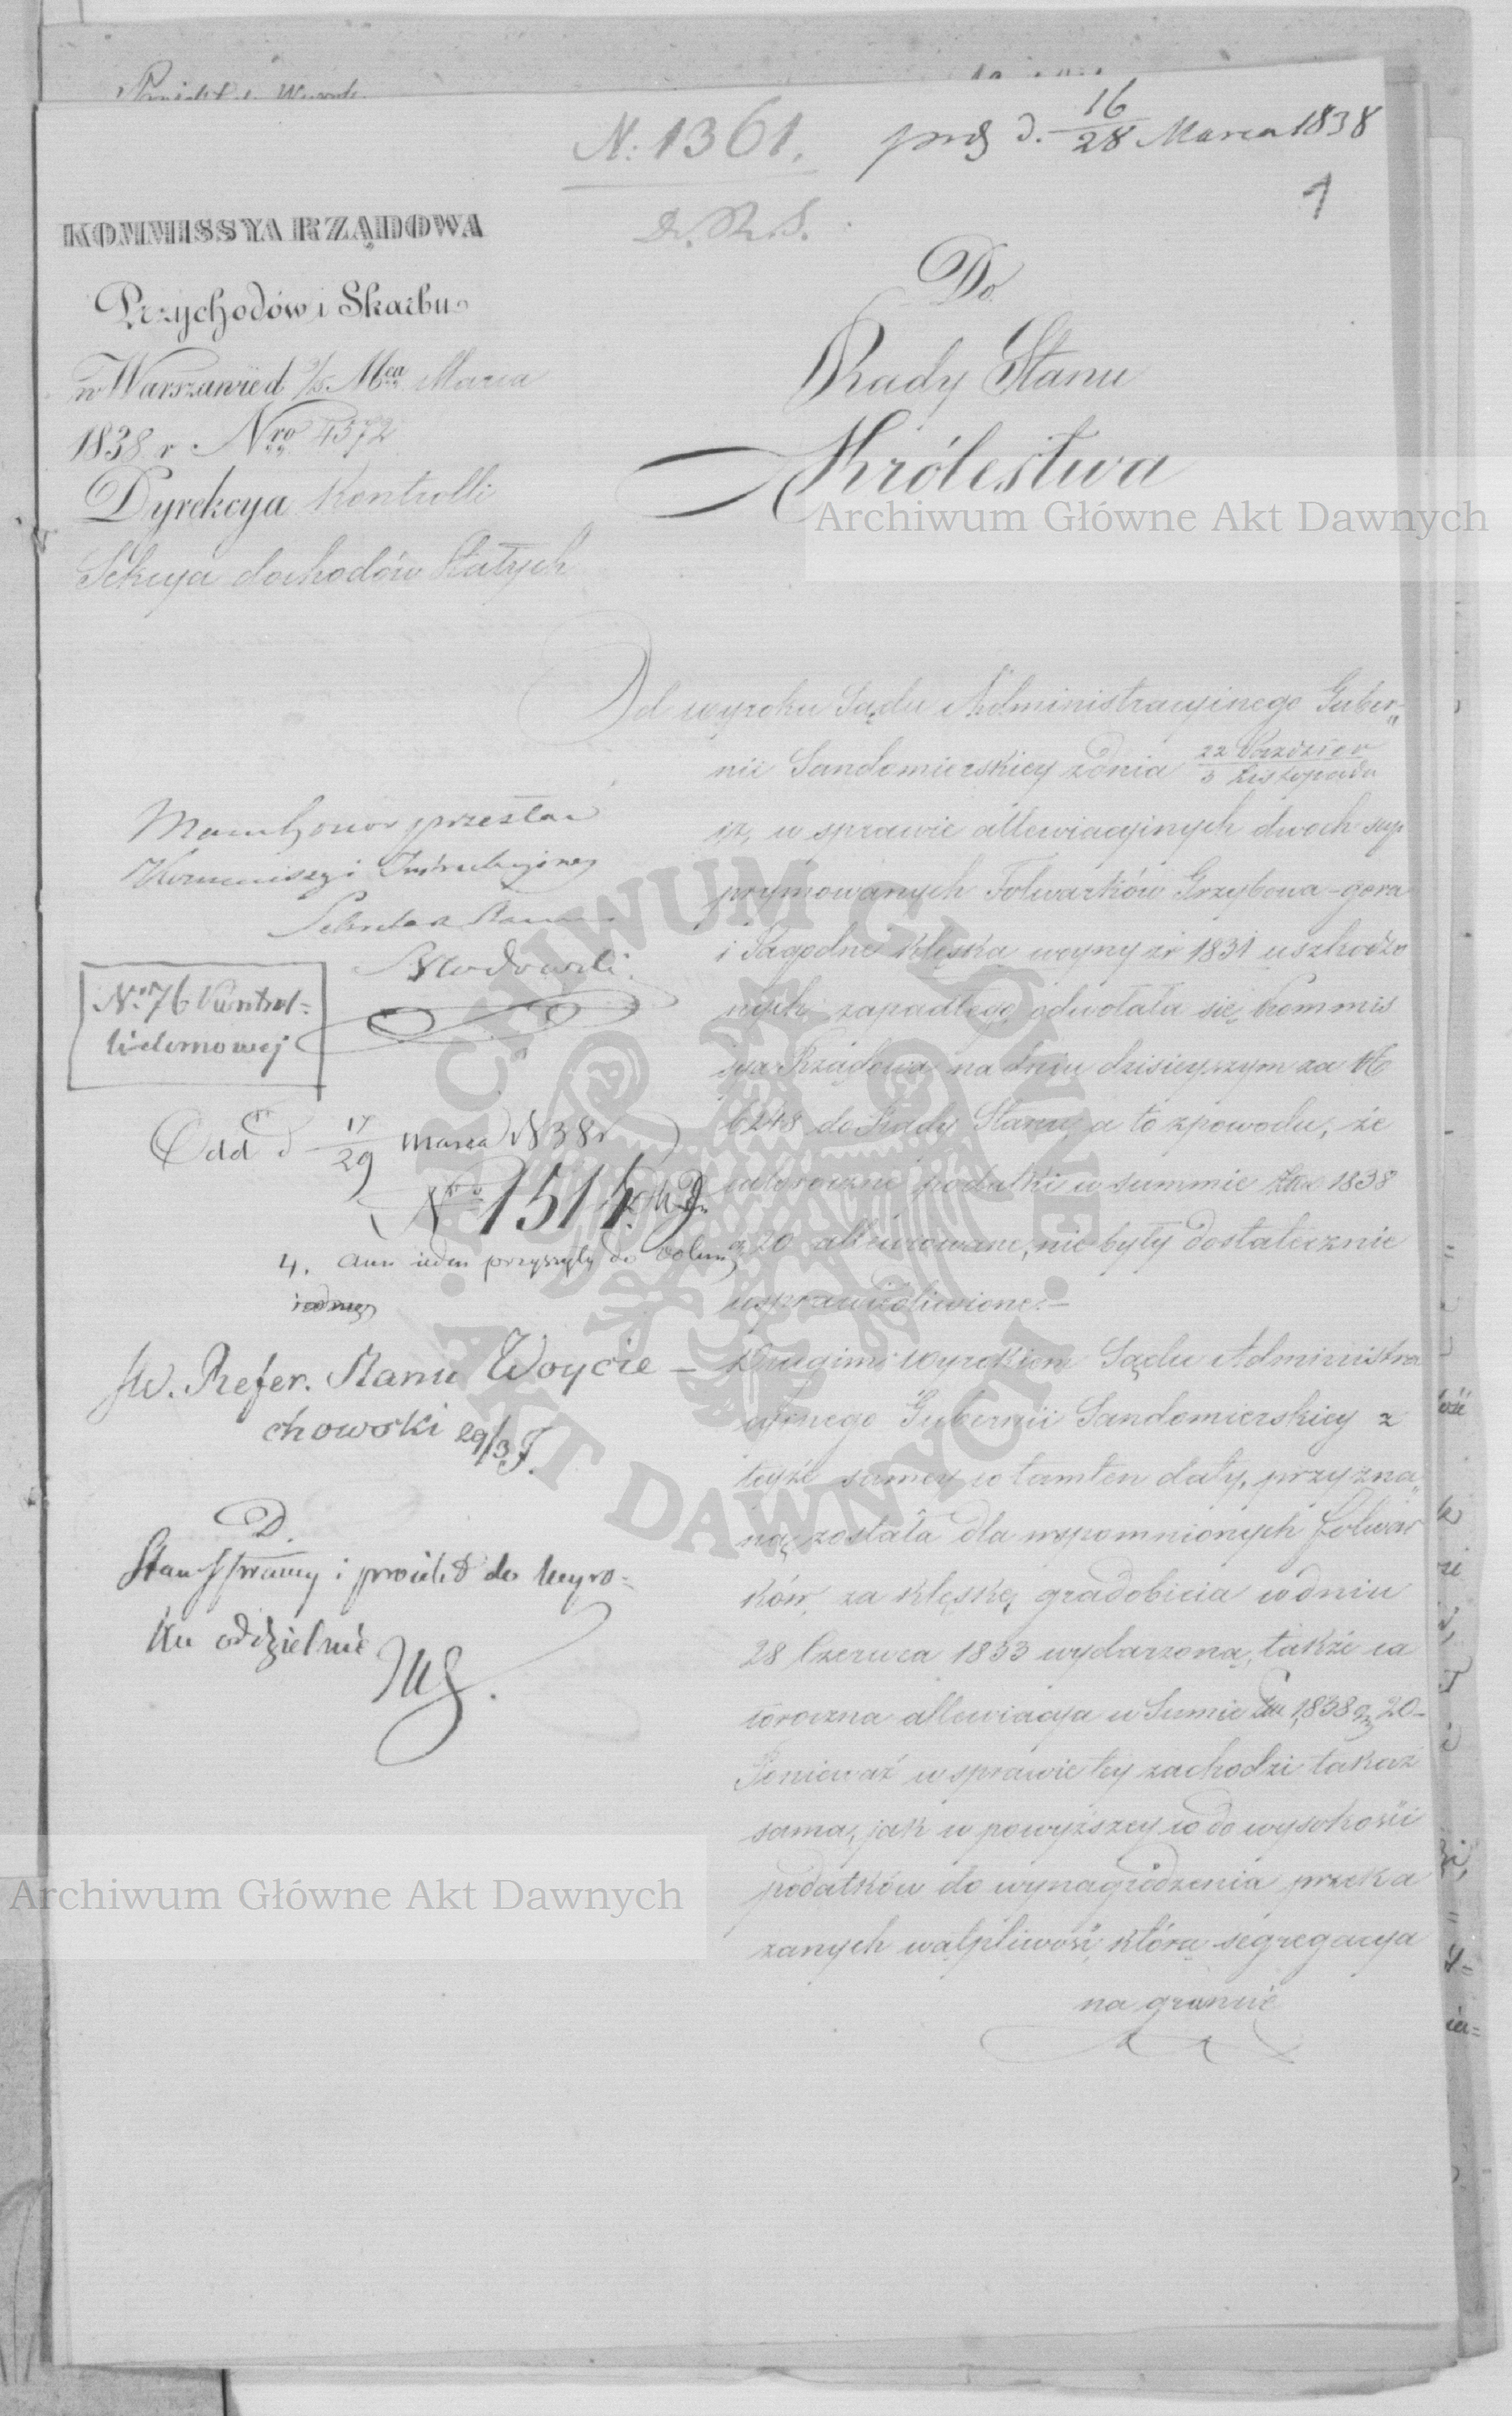 N. 1361.
prs d. 16/28 Marca 1838
1
KOMMISSYA RZĄDOWA
Przychodów i Skarbu
w Warszawie d 3/15 Mca Marca
1838 r Nro 4372
Dyrekcya Kontrolli
Sekcya dochodów Stałych
Do
Rady Stanu
Królestwa
Od wyroku Sądu Administracyinego Guber„
nii Sandomierskiey z dnia 22 Paździer / 3 Listopada
w sprawie allewiacyinych dwóch sup
prymowanych Folwarków Grzybowa-gora
i Jagodne klęską woyny z r 1831 uszkodzo
nych zapadłego odwołała się Kommis
sya Rządowa na dniu dzisieyszym za N
6248 do Rady Stanu, a to z powodu, że
całoroczne podatki w summie Złł. 1838
g 20 allewiowane, nie były dostatecznie
usprawiedliwione.—
Drugim Wyrokiem Sądu Administra
cyinego Gubernii Sandomierskiey z
teyże samey co tamten daty, przyzna„
ną została dla wspomnionych folwar
ków, za klęskę gradobicia w dniu
28 Czerwca 1833 wydarzoną, także ca
łoroczna allewiacya w Sumie Złł 1,838 g 20—
Ponieważ w sprawie tey zachodzi takaż
sama, jak w powyższey co do wysokości
podatków do wynagrodzenia przeka
zanych wątpliwość, którą segregacya
na gruncie
Mam honor przesłać
Kommissyi Instrukcyiney
Sekretarz Stanu
N. 76 Kontrol-
li domowej
Odd d 17/29 marca 1838 r
Nro 1514
4. Ann ieden przyszyty do
JW. Refer. Stanu Woycie-
chowski 29/3
D.
Stan Sprawy i proiekt do Wyro-
ku oddzielnie
Archiwum Główne Akt Dawnych
ARCHIWUM GŁÓWNE
AKT DAWNYCH
Archiwum Główne Akt Dawnych